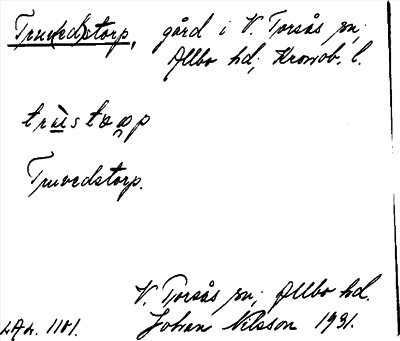 Tru(ved)storp, gård i V. Torsås sn;
Allbo hd; Kronob. l.
trùstoꞷp
Truvedstorp.
V. Torsås sn; Allbo hd.
LAL. 1101. Johan Nilsson 1931.